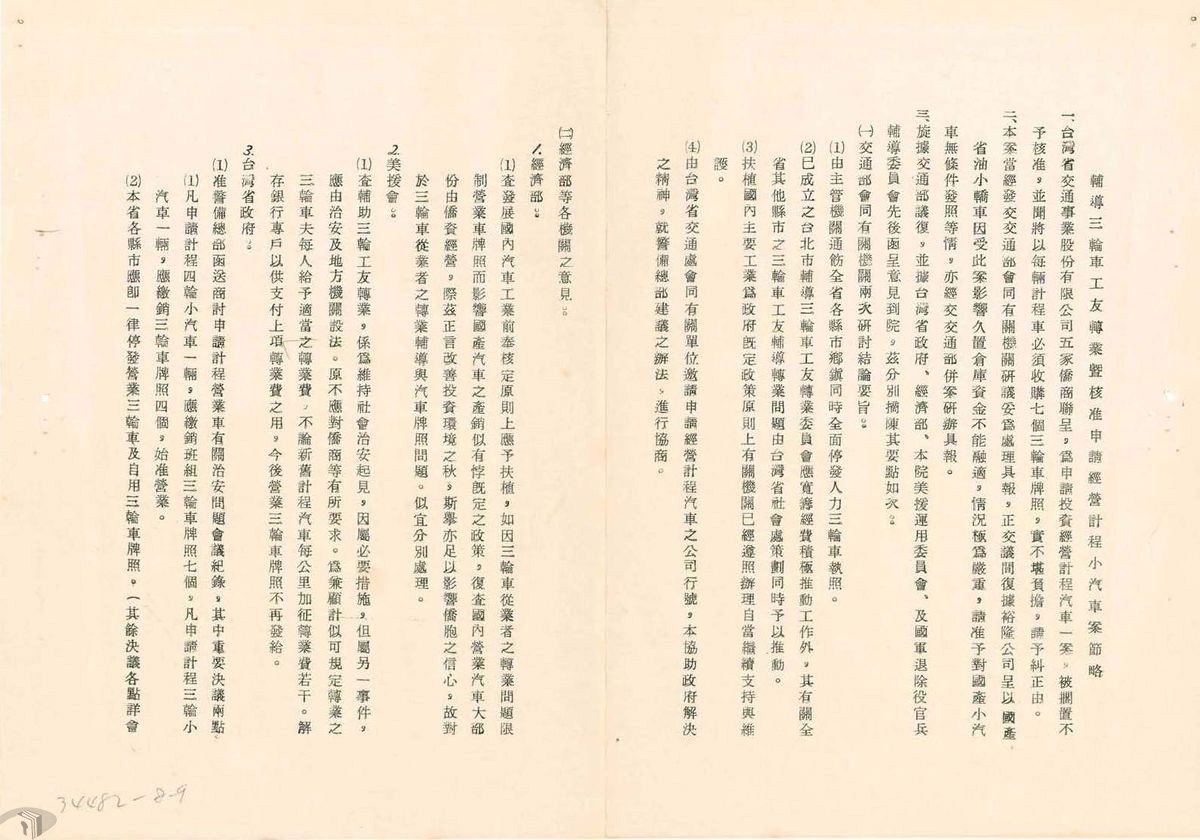 輔導三輪車工友轉業暨核准申請經營計程小汽車案節略
一、台灣省交通事業股份有限公司五家僑商聯呈，為申請投資經營計程汽車一案，被擱置不
予核准，並聞將以每輛計程車必須收購七個三輪車牌照，實不堪負擔，請予糾正由。
二、本案當經發交交通部會同有關機關研議妥為處理具報，正交議間復據裕隆公司呈以國產
省油小轎車因受此案影響久置倉庫資金不能融適，情況極為嚴重，請准予對國產小汽
車無條件發照等情，亦經交交通部併案研辦具報。
三、旋據交通部議復，並據台灣省政府、經濟部、本院美援運用委員會、及國軍退除役官兵
輔導委員會先後函呈意見到院，茲分別摘陳其要點如次。
㈠交通部會同有關機關兩次研討結論要旨。
(1)由主管機關通飭全省各縣市鄉鎮同時全面停發人力三輪車執照。
(2)已成立之台北市輔導三輪車工友轉業委員會應寬籌經費積極推動工作外，其有關全
省其他縣市之三輪車工友輔導轉業問題由台灣省社會處策劃同時予以推動。
(3)扶植國內主要工業為政府既定政策原則上有關機關已經遵照辦理自當繼續支持與維
護。
(4)由台灣省交通處會同有關單位邀請申請經營計程汽車之公司行號，本協助政府解決
之精神，就警備總部建議之辦法，進行協商。
㈡經濟部等各機關之意見。
1.經濟部。
(1)查發展國內汽車工業前奉核定原則上應予扶植，如因三輪車從業者之轉業問題限
制營業車牌照而影響國產汽車之產銷似有悖既定之政策，復查國內營業汽車大部
份由僑資經營，際茲正言改善投資環境之秋，斯舉亦足以影響僑胞之信心，故對
於三輪車從業者之轉業輔導與汽車牌照問題。似宜分別處理。
2.美援會。
(1)查輔助三輪工友轉業，係為維持社會治安起見，因屬必要措施，但屬另一事件，
應由治安及地方機關設法。原不應對僑商等有所要求。為兼顧計似可規定轉業之
三輪車夫每人給予適當之轉業費，不論新舊計程汽車每公里加征轉業費若干。解
存銀行專戶以供支付上項轉業費之用，今後營業三輪車牌照不再發給。
3.台灣省政府。
(1)准警備總部函送商討申請計程營業車有關治安問題會議紀錄，其中重要決議兩點
(1)凡申請計程四輪小汽車一輛，應繳銷班組三輪車牌照七個，凡申請計程三輪小
汽車一輛，應繳銷三輪車牌照四個，始准營業。
(2)本省各縣市應即一律停發營業三輪車及自用三輪車牌照。（其餘決議各點詳會
34482-8-9